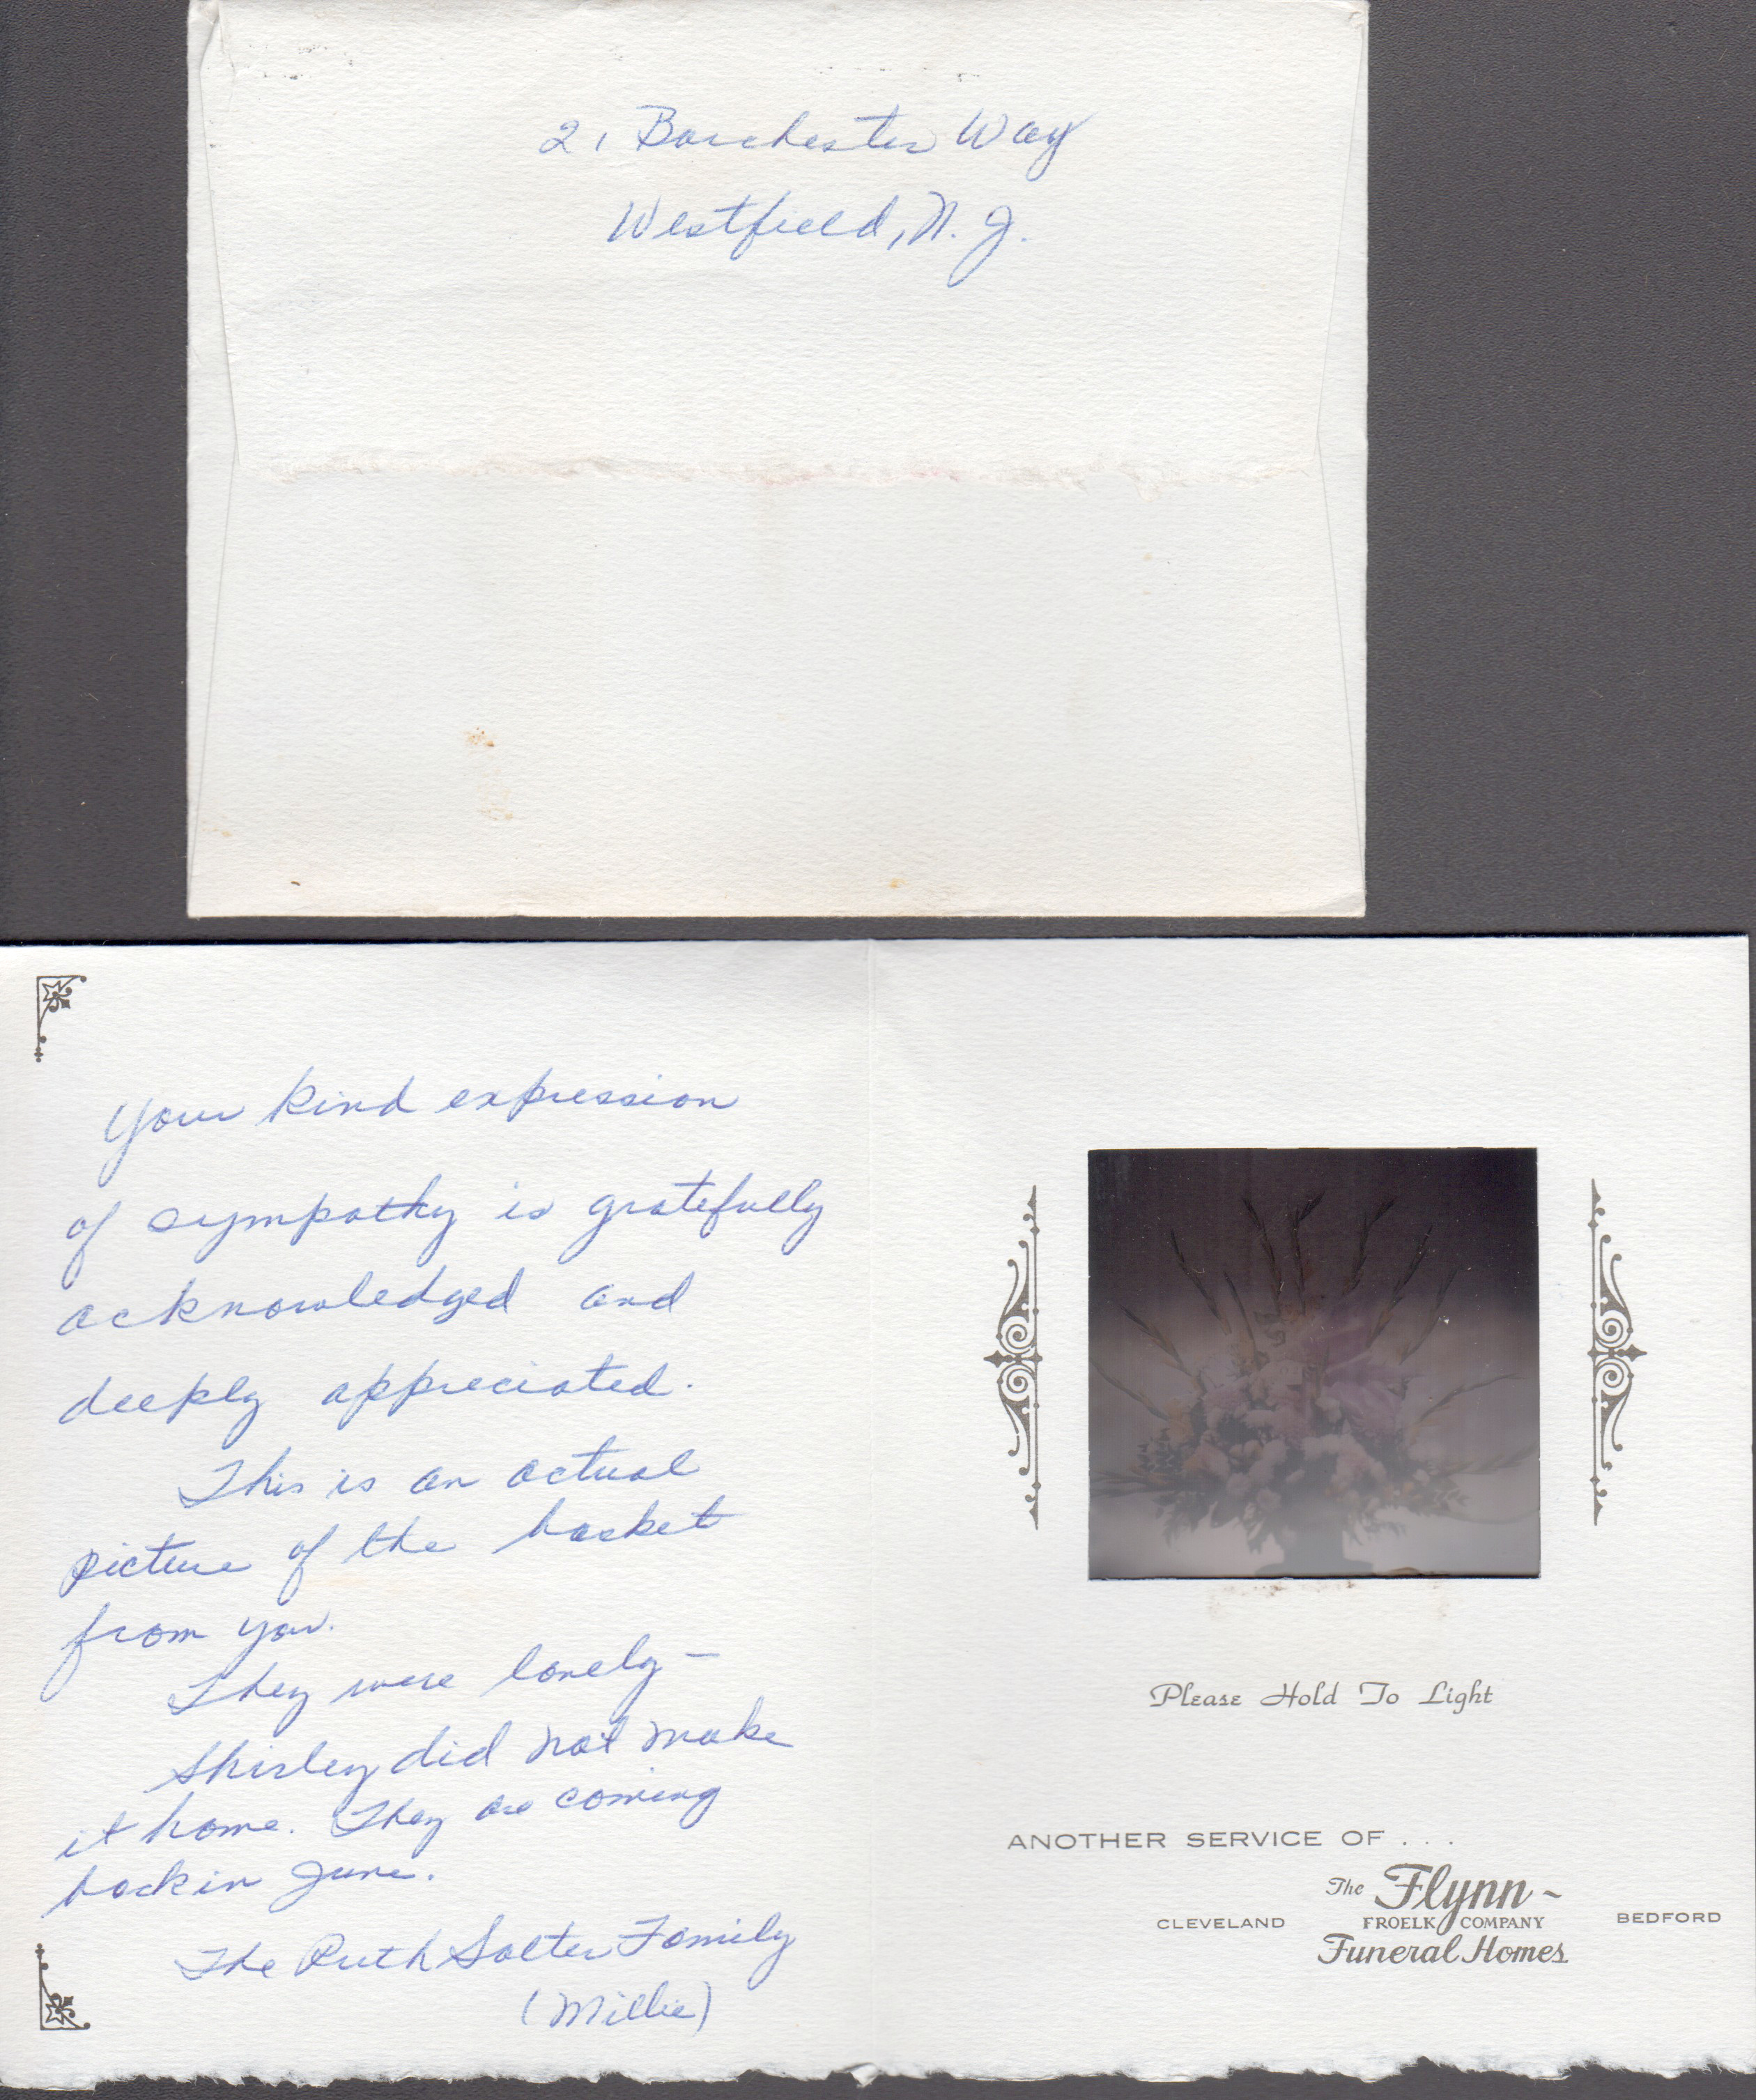 21 Barchester Way
Westfield, N. J.
Your kind expression
of sympathy is gratefully
acknowledged and
deeply appreciated.
This is an actual
picture of the basket
from you.
They were lovely —
Shirley did not make
it home. They are coming
back in June.
The Ruth Salter Family
(Millie)
Please Hold To Light
ANOTHER SERVICE OF . . .
The Flynn ~
CLEVELAND FROELK COMPANY BEDFORD
Funeral Homes